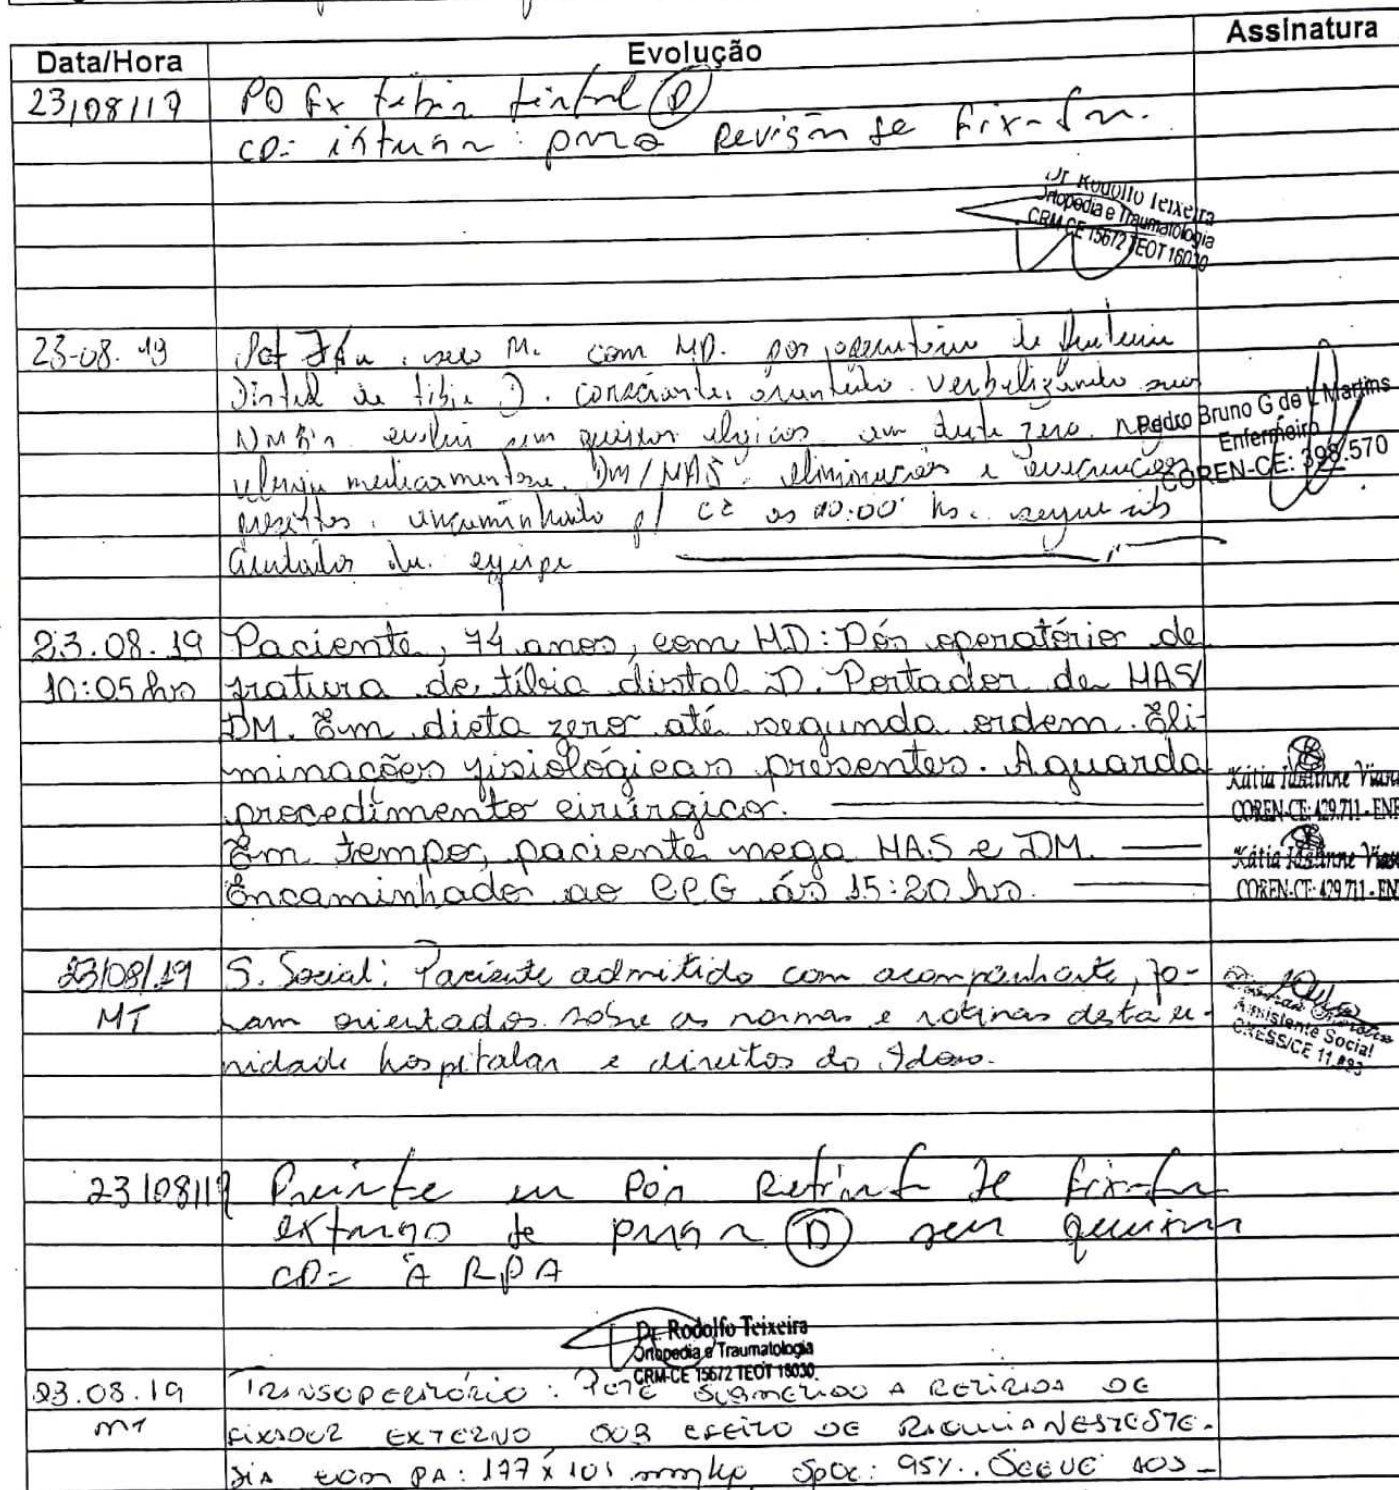 Data/Hora Evolução Assinatura
23/08/19 PO fx tibia distal (D)
CD: internar para Revisão de Fixador.
Dr Rodolfo Teixeira
Ortopedia e Traumatologia
CRM-CE 15672 TEOT 16030
23-08.19 Pct 74a, sexo M. com HD. pos operatório de fratura
Distal de tibia D. consciente, orientado. verbalizando suas
NHB's evolui sem queixas álgicas em dieta zero. nega
alergia medicamentosa. DM/HAS. eliminações e evacuações
presentes, encaminhado p/ CC as 10:00 hs. segue sob
Cuidados da equipe
Pedro Bruno G de L Martins
Enfermeiro
COREN-CE: 398.570
23.08.19 Paciente, 74 anos, com HD: Pós operatório de
10:05 hrs fratura de tíbia distal D. Portador de HAS/
DM. Em dieta zero até segunda ordem. Eli-
minações fisiológicas presentes. Aguarda
procedimento cirúrgico.
Em tempo, paciente nega HAS e DM.
Encaminhado ao CCG ás 15:20 hrs.
Kátia Viana
COREN-CE: 429.711 - ENF
Kátia Viana
COREN-CE: 429.711 - ENF
23/08/19 S. Social: Paciente admitido com acompanhante, fo-
MT ram orientados sobre as normas e rotinas desta u-
nidade hospitalar e direitos do Idoso.
Assistente Social
CRESS/CE
23/08/19 Paciente em Pós Retirada de Fixador
externo de perna (D) sem queixas
CD= À RPA
Dr. Rodolfo Teixeira
Ortopedia e Traumatologia
CRM-CE 15672 TEOT 16030
23.08.19 TRANSOPERATÓRIO: PCTE SUBMETIDO A RETIRADA DE
MT FIXADOR EXTERNO SOB EFEITO DE RAQUIANESTESTE-
SIA COM PA: 177 x 101 mmHg SpO2: 95%. SEGUE AOS